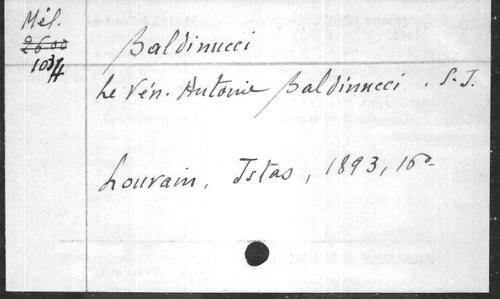 Mél.
2600
Baldinucci
Le Vén. Antonie Baldinucci. S.J.
Louvain, Istas, 1893, 16º